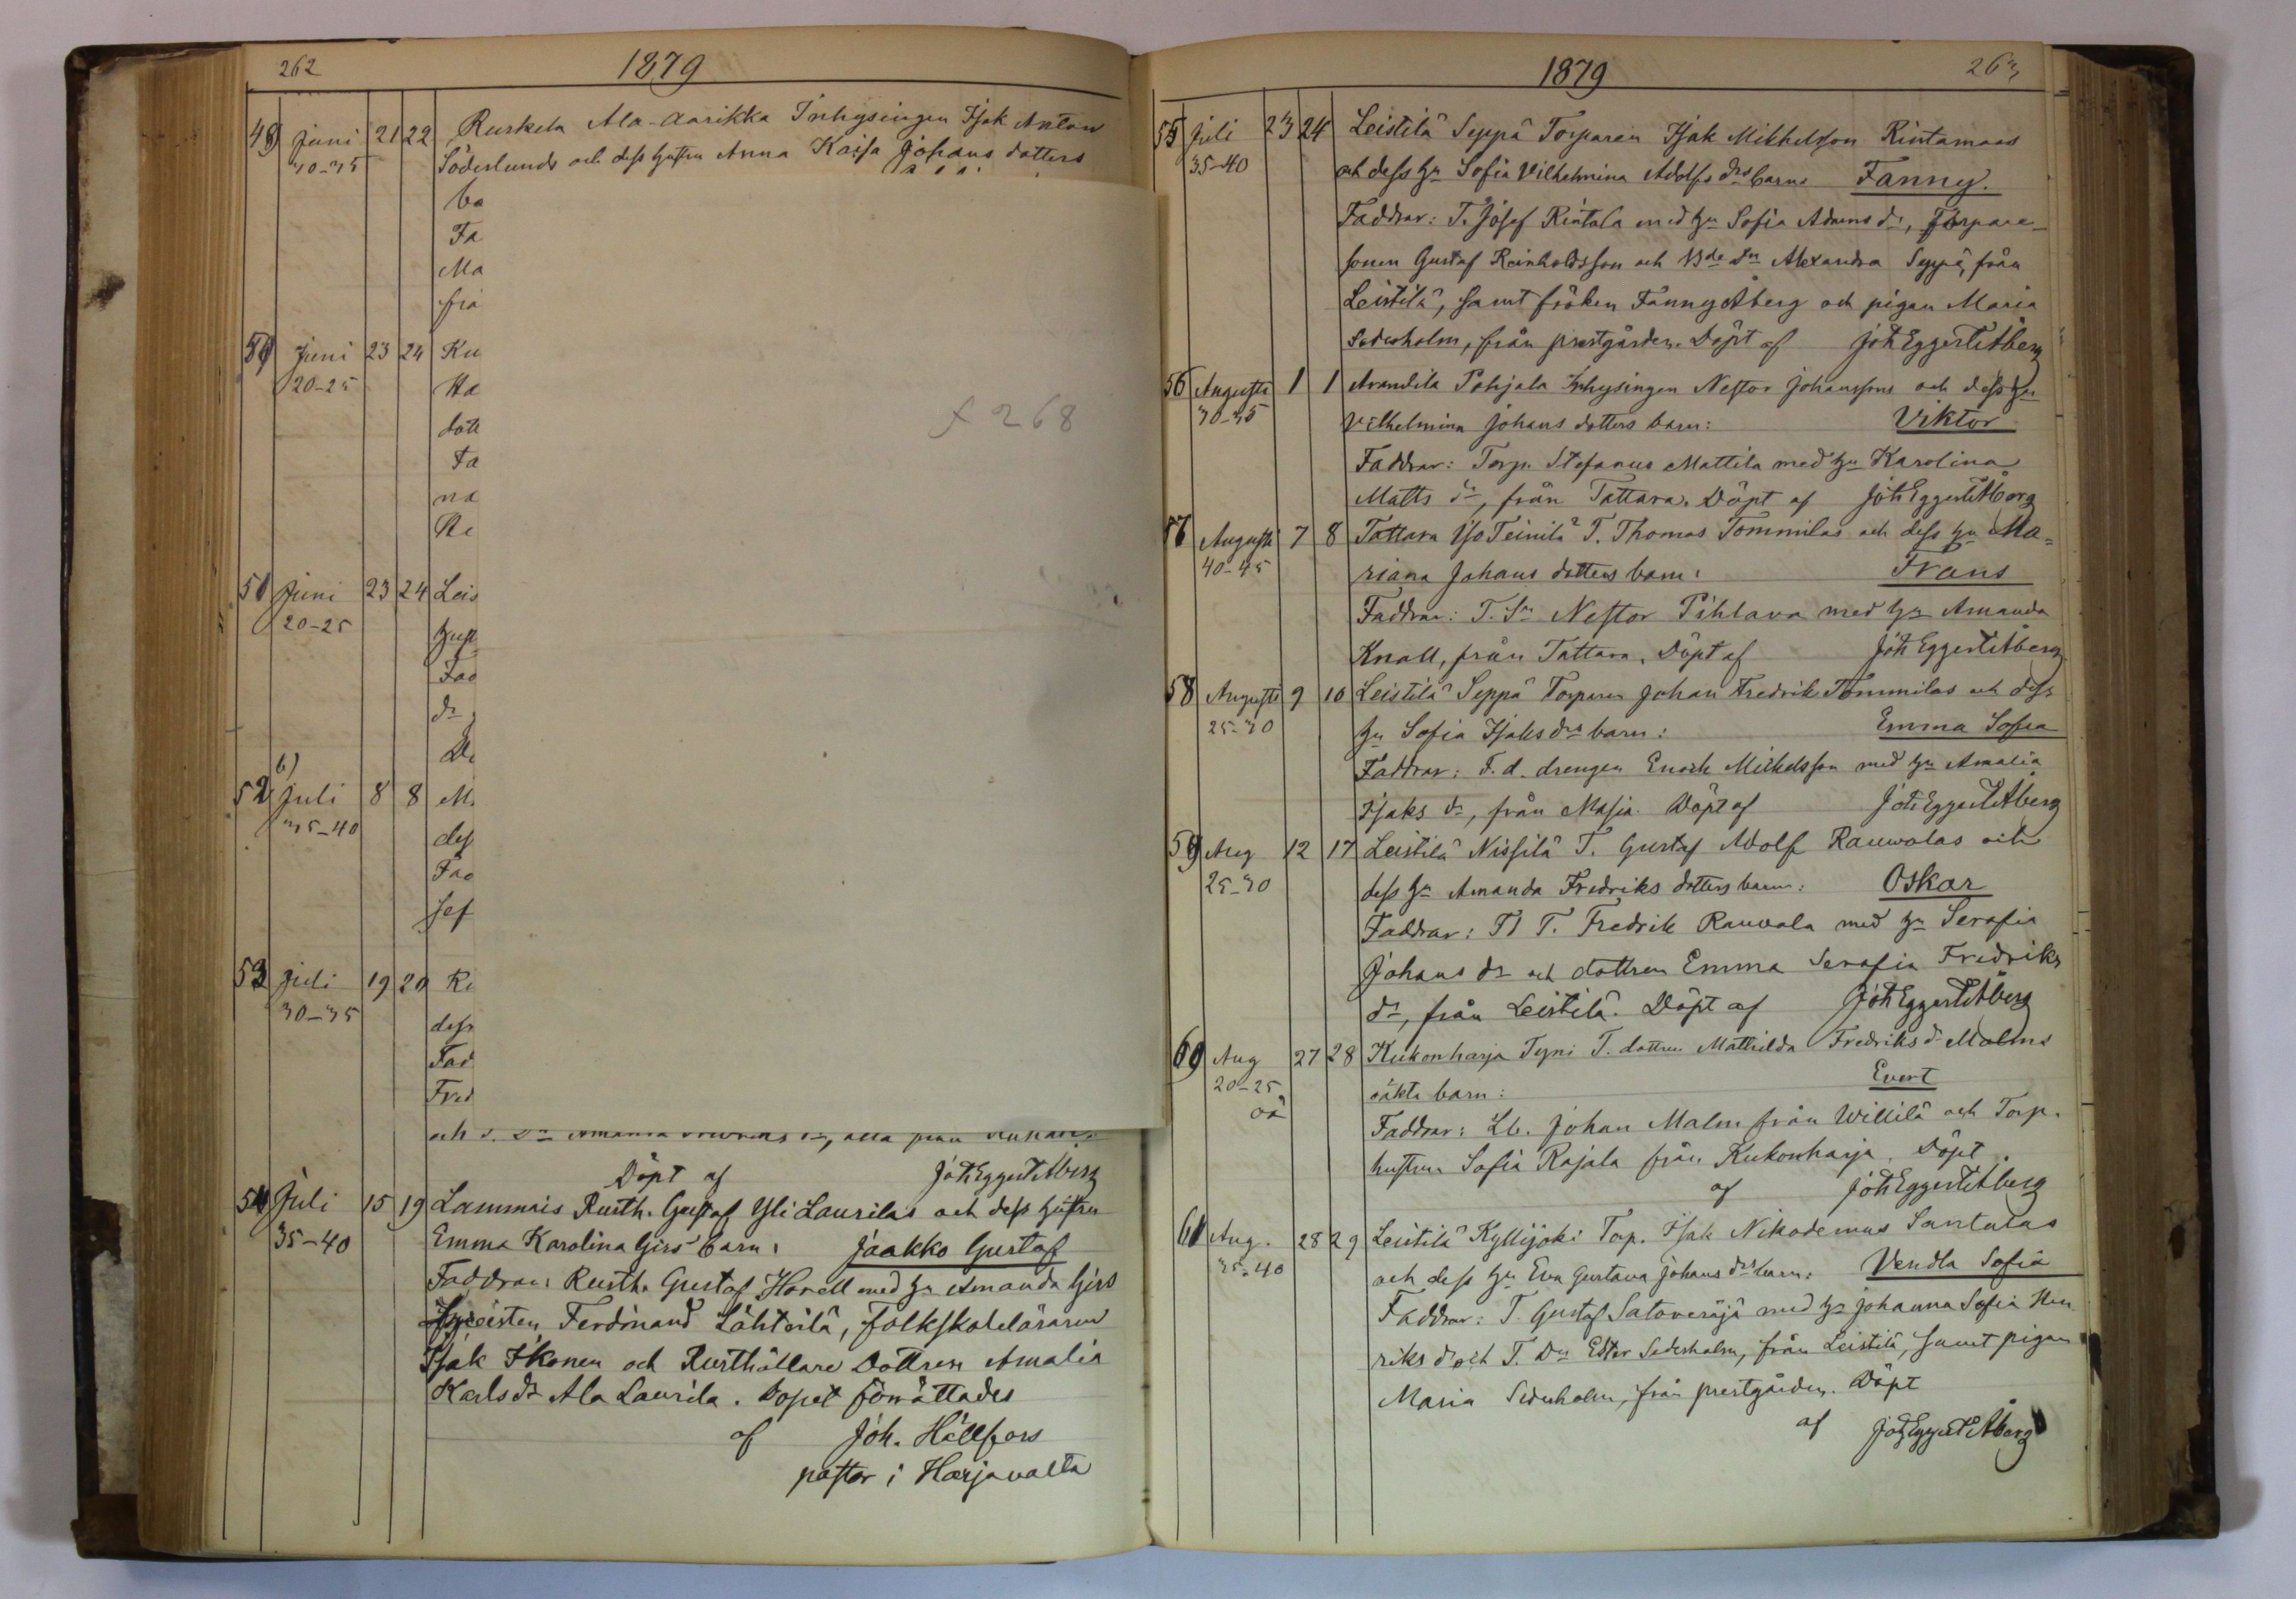 262
1879
49 Juni 21 22 Ruskela Ala-Aarikka Inhysingen Isak Anton
30-35 Söderlunds och dess hustru Anna Kaisa Johans dotters
ba
Fa
Ma
frå
50 Juni 23 24 Ku
20-25 Ha
dott
Fa
na
Re
51 Juni 23 24 Leis
20-25 hust
Fad
dr
Dö
52 Juli 8 8 M
35-40 dess
Fad
Jef
53 Juli 19 20 Ri
30-35 dess
Fad
Fred
och
Döpt af Joh Eggert Åberg
54 Juli 15 19 Lammais Rusth. Gustaf Yli Laurilas och dess hustru
35-40 Emma Karolina Girs barn: Jaakko Gustaf
Faddrar: Rusth. Gustaf Horell med hu Amanda Girs
Ferdinand Lähteilä, folkskoleläraren
Isak Ikonen och Rusthållare Dottren Amalia
Karls dr Ala Laurila. Dopet förrättades
af Joh. Hällfors
pastor i Harjavalta
x 268
1879
263
55 Juli 23 24 Leistilä Seppä Torparen Isak Mikkelsson Rintamaas
35-40 och dess hu Sofia Vilhelmina Adolfs drs barn Fanny.
Faddrar: T. Josef Rintala med hu Sofia Adams dr, Torpare-
sonen Gustaf Reinholdsson och Bde dn Alexandra Seppä, från
Leistilä, samt fröken Fanny Åberg och pigan Maria
Sederholm, från prestgården. Döpt af Joh Eggert Åberg
56 Augusti 1 1 Arandila Pohjala Inhysingen Nestor Johanssons och dess hu
30-35 Vilhelmina Johans dotters barn: Viktor
Faddrar: Torp. Stefanus Mattila med hu Karolina
Matts dr, från Tattara. Döpt af Joh Eggert Åberg
57 Augusti 7 8 Tattara Iso Teinilä T. Thomas Tommilas och dess hu Ma-
40-45 riana Johans dotters barn: Frans
Faddrar: T. Sn Nestor Pihlava med hu Amanda
Knall, från Tattara. Döpt af Joh Eggert Åberg
58 Augusti 9 10 Leistilä Seppä Torparen Johan Fredrik Tommilas och dess
25-30 hu Sofia Isaks drs barn: Emma Sofia
Faddrar: F. d. drengen Enoch Mickelsson med hu Amalia
Isaks dr, från Masia. Döpt af Joh Eggert Åberg
59 Aug 12 17 Leistilä Nissilä T. Gustaf Adolf Rauwolas och
25-30 dess hu Amanda Fredriks dotters barn: Oskar
Faddrar: Fd T. Fredrik Rauvola med hu Serafia
Johans dr och dottren Emma Serafia Fredriks
dr, från Leistilä. Döpt af Joh Eggert Åberg
60 Aug 27 28 Kukonharja Tyni T. dottren Mathilda Fredriks dr Malms
20-25 oäkta barn: Evert
oä
Faddrar: Lb. Johan Malm från Willilä och Torp.
hustrun Sofia Rajala från Kukonharja. Döpt
af Joh Eggert Åberg
61 Aug. 28 29 Leistilä Kyllijoki Torp. Isak Nikodemus Santalas
35-40 och dess hu Eva Gustava Johans drs barn: Vendla Sofia
Faddrar: T. Gustaf Satoveräjä med hu Johanna Sofia Hen
riks dr och T. Dn Ester Sederholm, från Leistilä, samt pigan
Maria Sederholm, från prestgården. Döpt
af Joh Eggert Åberg